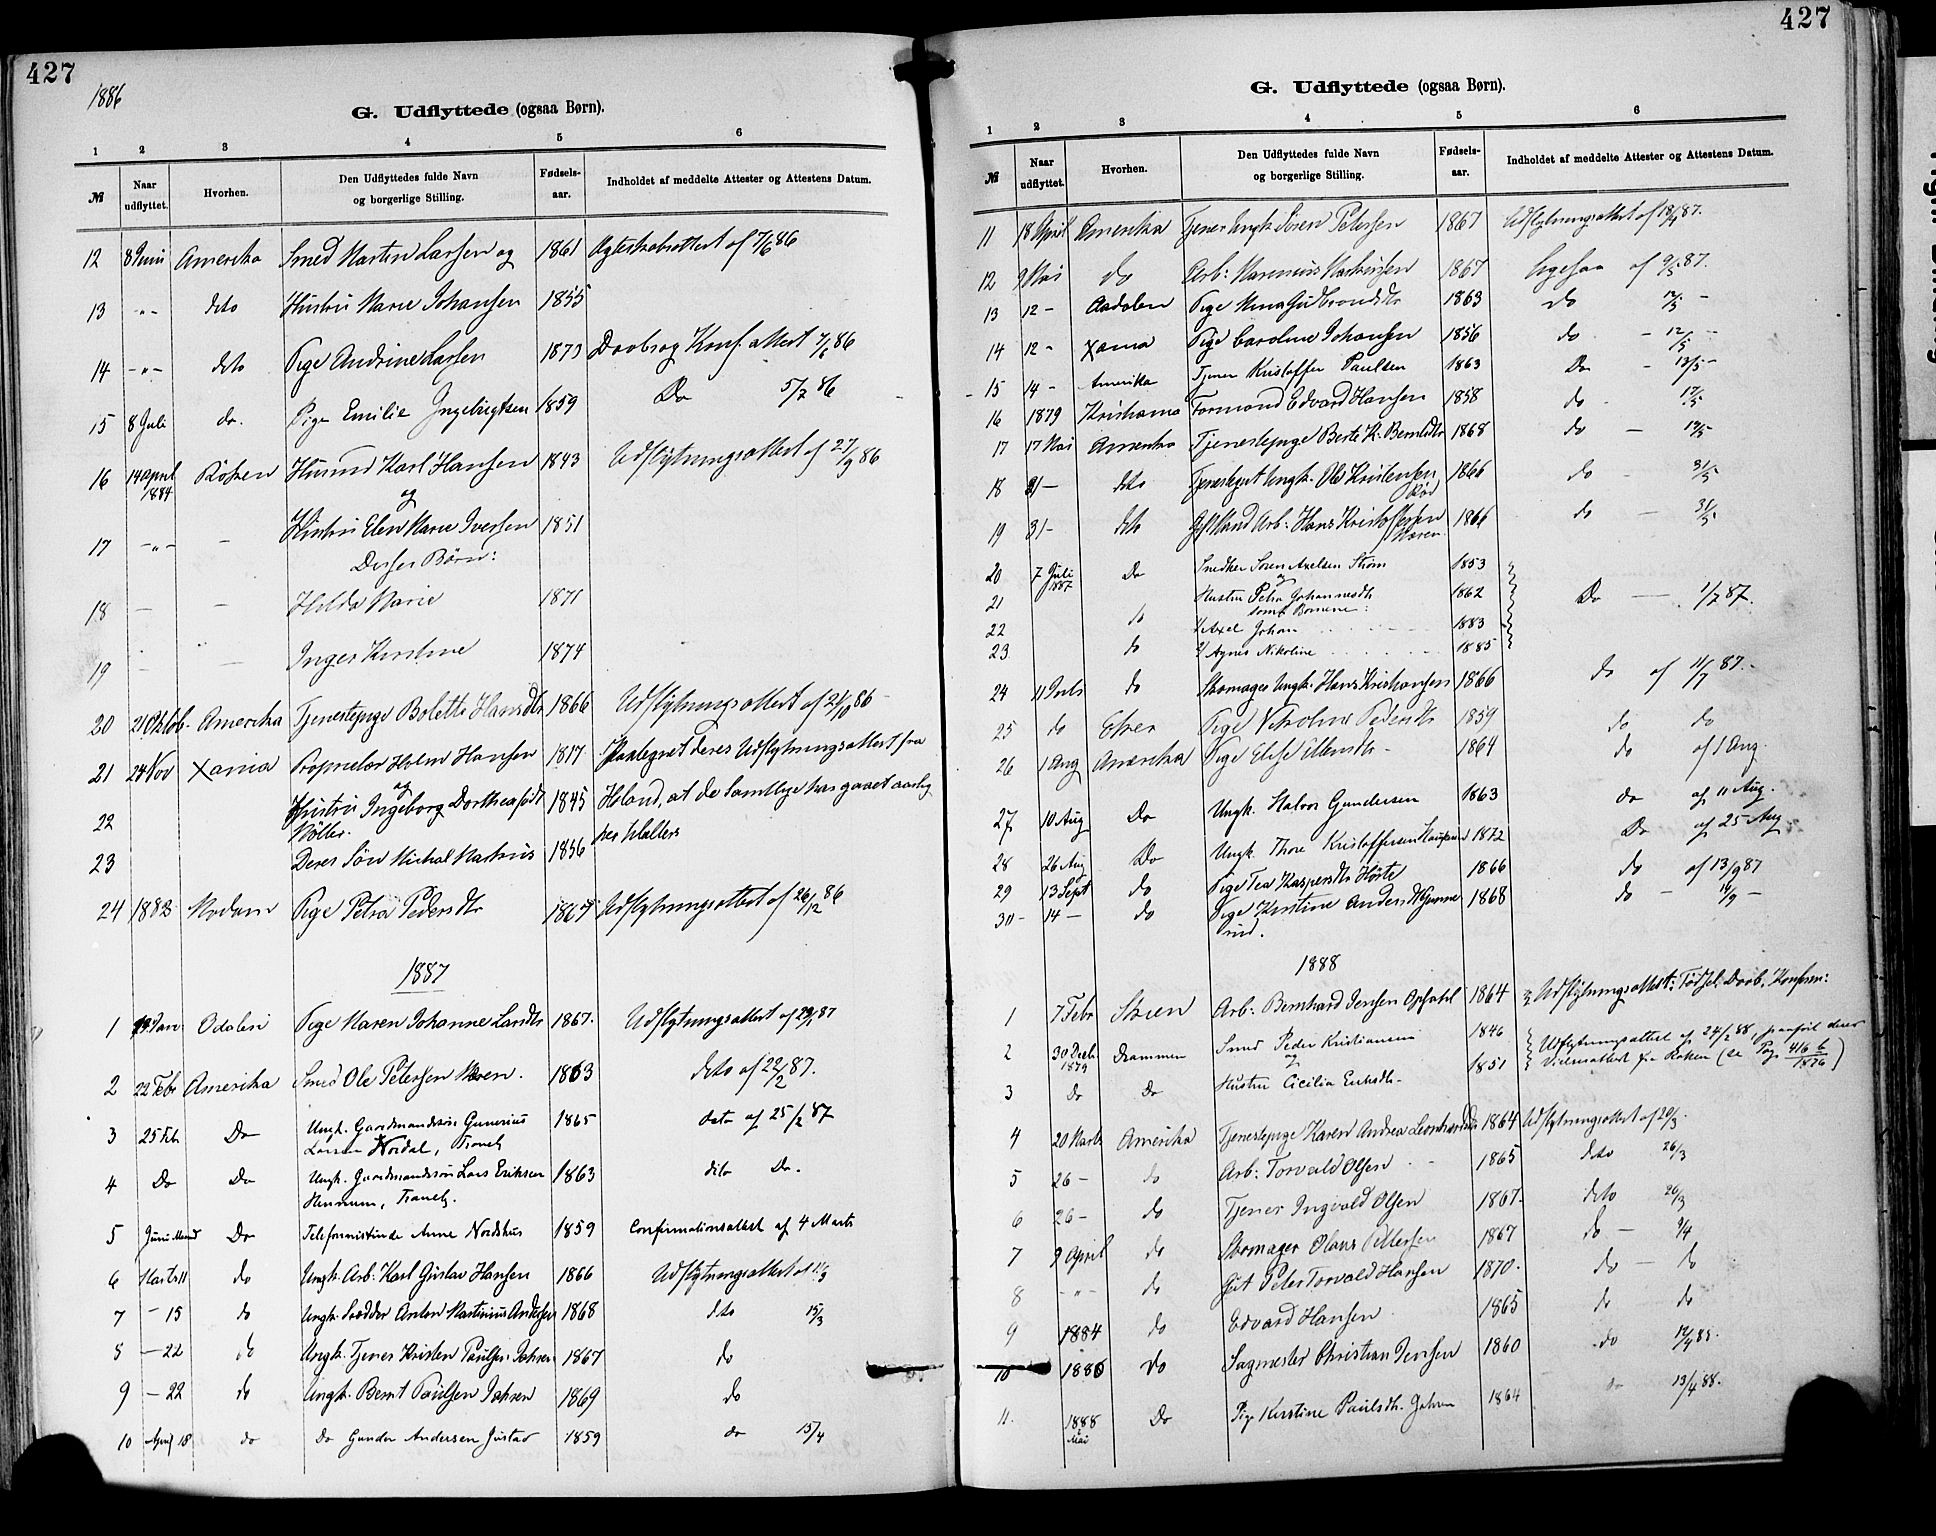 427
1886
G. Udflyttede (ogsaa Børn).
1 2 3 4 5 6
№ Naar udflyttet. Hvorhen. Den Udflyttedes fulde Navn og borgerlige Stilling. Fødsels-aar. Indholdet af meddelte Attester og Attestens Datum.
12 8 Juni Amerika Smed Martin Larsen og 1861 Ægteskabsattest af 7/6 86
13 -"- deto Hustru Marie Johansen 1855
14 -"- deto Pige Andrine Larsen 1873 Daabs og Konf. attest 7/6 86
15 8 Juli do. Pige Emilie Ingebrigtsen 1859 Do 5/7 86
16 14 april 1884 Røken Husmd Karl Hansen 1843 Udflytningsattest af 27/9 86
og
17 -"- - Hustru Elen Marie Iversen 1851
Deres Børn:
18 - - Hilda Marie 1871
19 - - Inger Kirstine 1874
20 21 Oktob. Amerika Tjenestepige Bolette Hansdtr 1866 Udflytningsattest af 21/10 86
21 24 Nov Xania Proprietær Holm Hansen 1817 Paategnet deres Udflytningsattest fra
og
22 Hustru Ingeborg Dorthea født 1845 Høland, at de samtlige har gaaet aarlig
Møller.
23 Deres Søn Michal Markus 1856
24 1882 Modum Pige Petra Pedersdtr 1867 Udflytningsattest af 26/12 86
1887
1 29 Jan Odalen Pige Maren Johanne Larsdtr 1867. Udflytningsattest af 29/1 87
2 22 Febr Amerika Smed Ole Petersen Moren. 1863 deto af 22/2 87.
3 25 Feb Do Ungk. Gaardmandssøn Gunerius 1865 dato af 25/2 87
Larsen Nordal, Traneb.
4 Do Do Ungk. Gaardmandssøn Lars Eriksen 1863 dito Do.
Hennum, Traneb.
5 Do Telefonistinde Anne Nordshus 1859 Confirmationsattest af 4 Marts
6 Marts 11 do Ungk. Arb. Karl Gustav Hansen 1866 Udflytningsattest af 11/3
7 - 15 do Ungk. Anton Martinius Andersen 1868 deto 15/3
8 - 22 do Ungk. Tjener Kristen Paulsen Jahren 1867 do
9 - 22 do Ungk. Bernt Paulsen Jahren 1869 do
10 April 18 do Do Gunder Andersen Justad 1859 do 15/4
427
G. Udflyttede (ogsaa Børn).
1 2 3 4 5 6
№ Naar udflyttet. Hvorhen. Den Udflyttedes fulde Navn og borgerlige Stilling. Fødsels-aar. Indholdet af meddelte Attester og Attestens Datum.
11 18 April Amerika Tjener Ungk. Søren Petersen 1867 Udflytningsattest af 18/4 87.
12 9 Mai do Arb: Marenius Markussen 1867 ligesaa af 9/5 87.
13 12 - Aadalen Pige Mina Gudbrandsdtr 1863 do 12/5 -
14 12 - Xania Pige Caroline Johansen 1856 do - 12/5 -
15 14 - Amerika Tjener Kristoffer Paulsen 1863 Do - 13/5 -
16 1879 Kristiania Formand Edvard Hansen 1858 do - 17/5
17 17 Mai Amerika Tjenestepige Berte K. Berntsdtr 1868 do - 17/5
18 31 - deto Tjenestegut Ungk. Ole Kristensen 1866 do - 31/5
Rød
19 31 - deto Arb: Hans Kristoffersen 1866 do - 31/5
Moren
20 7 Juli 1887 Do Snedker Søren Axelsen Strøm 1853
og
21 Hustru Petra Johannesdtr 1862 Do - 1/7 87.
samt Børnene:
22 do 1/ Axel Johan 1883
23 do 2/ Agnes Nikoline 1885
24 11 Juli do Skomager Ungk. Hans Kristiansen 1866 do af 11/7 87.
25 do Pige Nikoline Pedersdtr 1859 do do
26 1 Aug Amerika Pige Elise Ellensdtr 1864 do af 1 Aug.
27 10 Aug Do Ungk. Halvor Gundersen 1863 do af 11 Aug.
28 26 Aug Do Ungk. Thore Kristoffersen 1872 Do af 25 Aug
29 13 Sept do Pige Tea Kaspersdtr Hørte 1866 do af 13/9 87
30 - 14 - do Pige Kirstine Andersd Gunne 1868 do - 14/9 -
rud.
1888
1 7 Febr Skien Arb: Bernhard Jensen Opsahl 1864 Udflytningsattest: Fødsel. Daab, Konfirm:
2 30 Decb 1879 Drammen Smed Peder Kristiansen 1846 Udflytningsattest af 24/2 88, paaført deres
og
3 Do Do Hustru Cicilia Eriksdtr 1851 Vielsesattest fra Røken (se Pag. 416 6/1876)
4 20 Marts Amerika Tjenestepige Karen Andrea Leonhardsdtr 1864 Udflytningsattest af 20/3.
5 26 - do Arb: Torvald Olsen 1865 deto 26/3
6 26 - do Tjener Ingvald Olsen 1867. deto 26/3
7 9 April do Skomager Olaus Pettersen 1867 do - 9/4
8 -"- do Gut Peter Torvald Hansen 1870. do - do
9 1884 do Edvard Hansen 1865 do do
10 1880 do Sagmester Christian Jensen 1860 do 12/4 88.
11. 1888 Mai Do Pige Kirstine Paulsdtr. Jahren 1864 do 13/4 88.